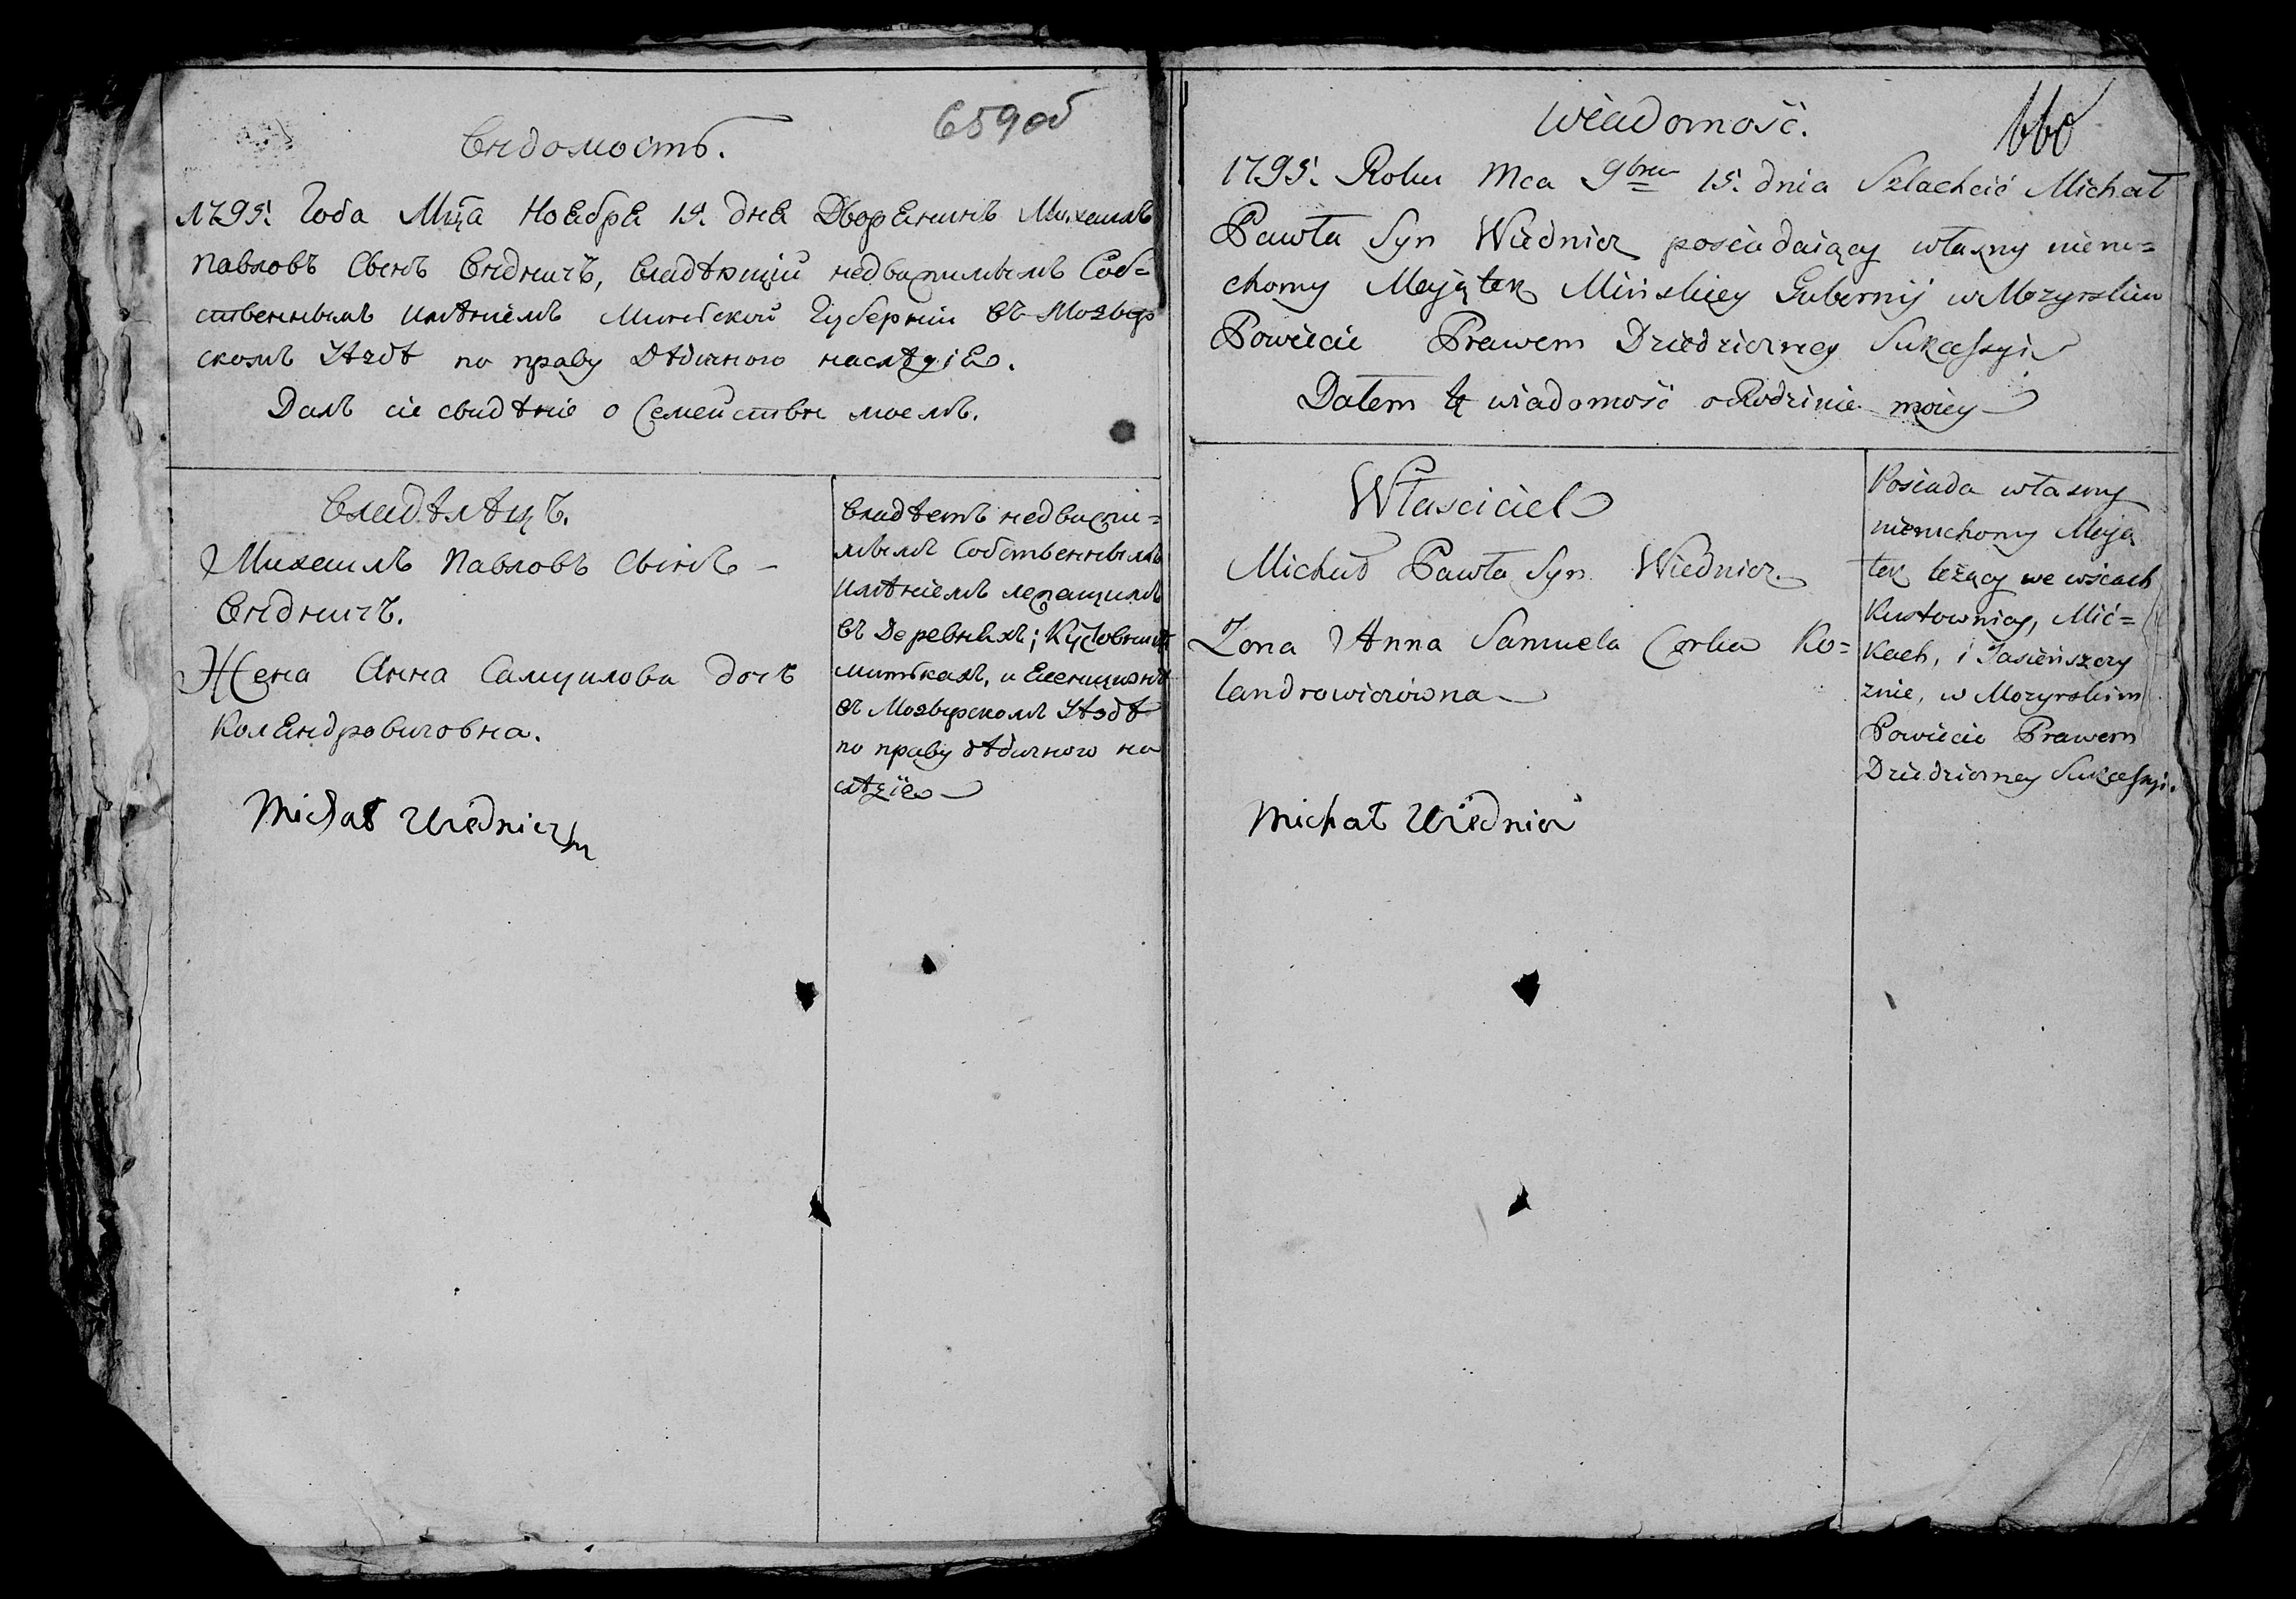 659 об
Вѣдомость.
1795. Года Мца Ноября 15. дня Дворянинъ Михаилъ
Павловъ Сынъ Вѣдничъ, владѣющiй недвижимымъ Соб=
ственнымъ имѣнiемъ Минской Губернiи въ Мозыр
скомъ Уѣздѣ по праву Дѣдичного наслѣдiя.
Далъ сiе свидѣнiе о Семействѣ моемъ.
Владѣлецъ.
Михаилъ Павловъ Сынъ –
Вѣдничъ.
Жена Анна Самуилова дочь
Колендровичовна.
Michał Wiednicz
владѣетъ недвижи=
мымъ Собственнымъ
имѣнiемъ лежащимъ
въ Деревняхъ;
Митькахъ, и
въ Мозырскомъ Уѣздѣ
по праву дѣдичного на
слѣдiя
660
Wiadomość.
1795. Roku Mca 9bra 15. dnia Szlachcić Michał
Pawła Syn Wiednicz posiadaiący własny nieru=
chomy Mająтek Mińskiey Gubernij w Mozyrskim
Powiecie Prawem Dziedziczney Sukcessyi
Dałem tę wiadomość o Rodzinie moiey
Właściciel
Michał Pawła Syn Wiednicz
Zona Anna Samuela Corka Ko=
landrowiczowna
Michał Wiednicz
Posiada własny
nieruchomy Mają
tek leżący we wsiach
Kustownicy, Mić=
kach, i Jasieńszczy
znie, w Mozyrskim
Powiecie Prawem
Dziedziczney Sukcessyi.